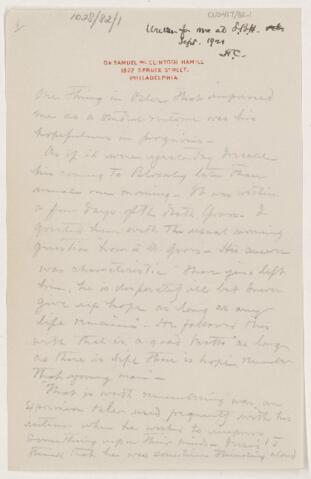 1028/82/1
CUS417/82.1
Written for me at S.B.H.
Sept. 1921
H.C.
DR. SAMUEL MCCLINTOCK HAMILL
1822 SPRUCE STREET.
PHILADELPHIA
One thing in Osler that impressed
me as a student interne was his
hopefulness in prognosis -
As if it were yesterday I recall
his coming to Blockley later than
usual one morning - It was within
a few days of the death Gross. I
greeted him with the usual morning
question how is Dr. Gross - His answer
was characteristic
him, he is desperately ill but never
give up hope as long as any
life remains". He followed this
with "that is a good motto" as long
as there is life there is hope, remember
that young man" -
"That is worth remembering" was an
expression Osler used frequently with his
internes when he wished to impress
something upon their minds - I used to
think that he was sometimes thinking aloud